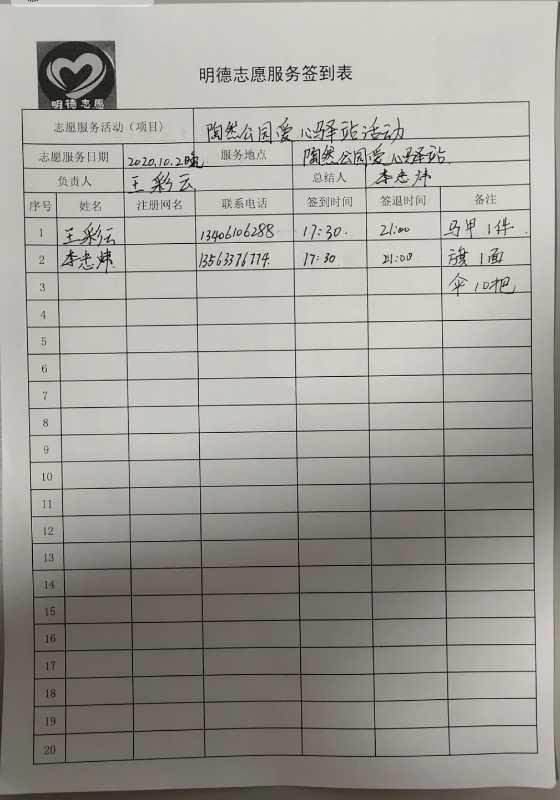 明德志愿
明德志愿服务签到表
志愿服务活动（项目） 陶然公园爱心驿站活动
志愿服务日期 2020.10.2晚 服务地点 陶然公园爱心驿站
负责人 王彩云 总结人 李志炜
序号 姓名 注册网名 联系电话 签到时间 签退时间 备注
1 王彩云 13406106288 17:30. 21:00 马甲 1件.
2 李志炜 13563376774. 17:30 21:00 旗 1面
3 伞 10把
4
5
6
7
8
9
10
11
12
13
14
15
16
17
18
19
20